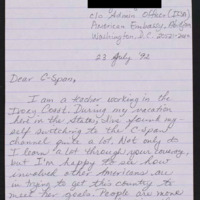 c/o "Admin" Officer (ICA)
American Embassy, Abidjan
Washington, D.C.
23 July '92
Dear C-Span,
I am a teacher working in the
Ivory Coast. During my vacation
here in the states, I've found my
self switching to the C-Span
channel quite a lot. Not only do
I learn a lot through your coverage,
but I'm happy to see how
involved other Americans are
in trying to get this country to
meet her goals. People are more